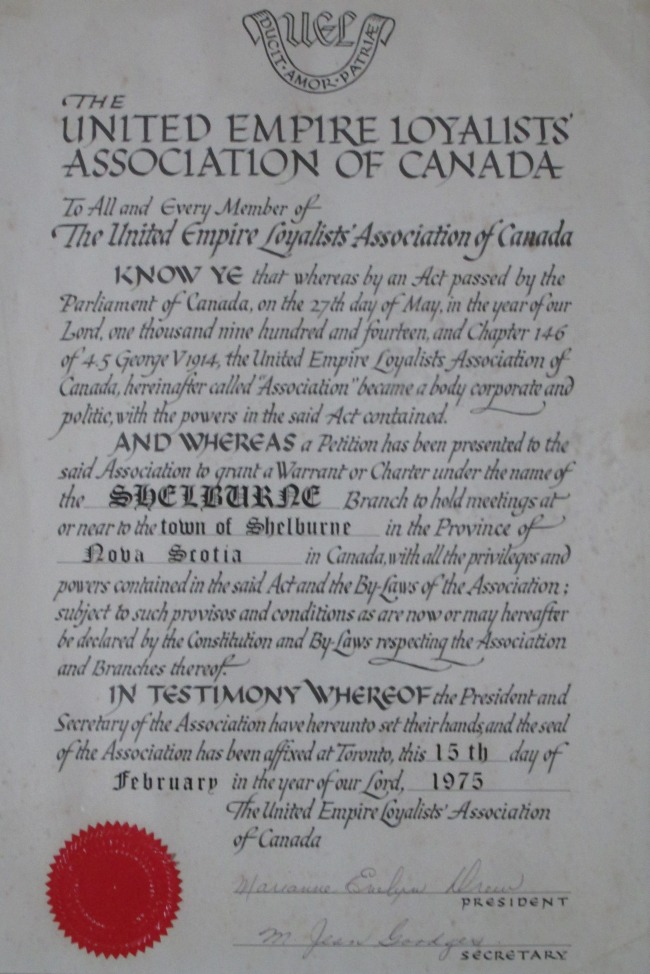 UEL
DUCIT · AMOR · PATRIÆ
THE
UNITED EMPIRE LOYALISTS'
ASSOCIATION OF CANADA
To All and Every Member of
The United Empire Loyalists' Association of Canada
KNOW YE that whereas by an Act passed by the
Parliament of Canada, on the 27th day of May, in the year of our
Lord, one thousand nine hundred and fourteen, and Chapter 146
of 4.5 George V 1914, the United Empire Loyalists Association of
Canada, hereinafter called "Association" became a body corporate and
politic, with the powers in the said Act contained.
AND WHEREAS a Petition has been presented to the
said Association to grant a Warrant or Charter under the name of
the SHELBURNE Branch to hold meetings at
or near to the town of Shelburne in the Province of
Nova Scotia in Canada, with all the privileges and
powers contained in the said Act and the By-Laws of the Association;
subject to such provisos and conditions as are now or may hereafter
be declared by the Constitution and By-Laws respecting the Association
and Branches thereof.
IN TESTIMONY WHEREOF the President and
Secretary of the Association have hereunto set their hands, and the seal
of the Association has been affixed at Toronto, this 15 th day of
February in the year of our Lord, 1975
The United Empire Loyalists' Association
of Canada
Marianne Evelyn Drew
PRESIDENT
M Jean
SECRETARY